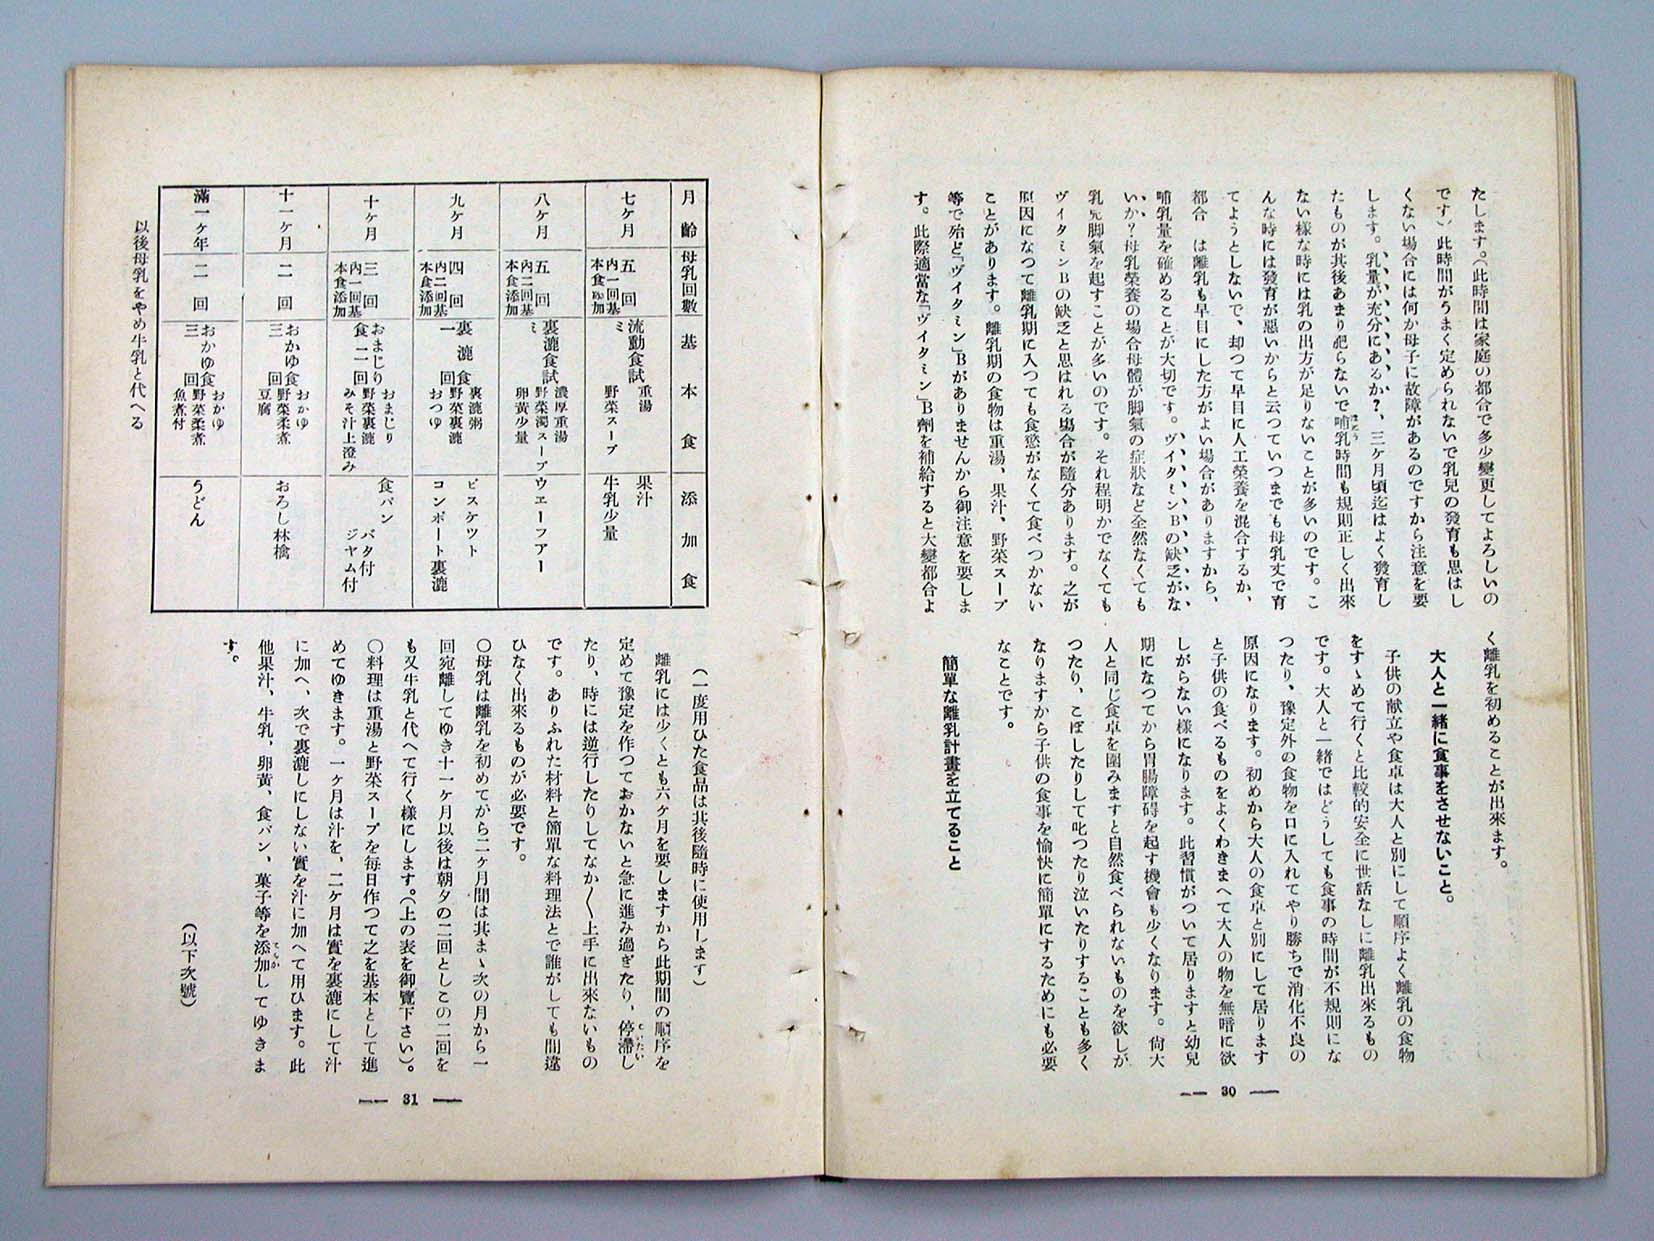 たします。(此時間は家庭の都合で多少變更してよろしいの
です) 此時間がうまく定められないで乳兒の發育も思はし
くない場合には何か母子に故障があるのですから注意を要
します。乳量が充分にあるか?、三ヶ月頃迄はよく發育し
たものが其後あまり肥らないで哺乳時間も規則正しく出來
ない樣な時には乳の出方が足りないことが多いのです。こ
んな時には發育が悪いからと云つていつまでも母乳丈で育
てようとしないで、却つて早目に人工榮養を混合するか、
都合 は離乳も早目にした方がよい場合がありますから、
哺乳量を確めることが大切です。ヴイタミンBの缺乏がな
いか?母乳榮養の場合母體が脚氣の症狀など全然なくても
乳兒脚氣を起すことが多いのです。それ程明かでなくても
ヴイタミンBの缺乏と思はれる塲合が隨分あります。之が
原因になつて離乳期に入つても食慾がなくて食べつかない
ことがあります。離乳期の食物は重湯、果汁、野菜スープ
等で殆ど『ヴイタミン』Bがありませんから御注意を要しま
す。此際適當な『ヴイタミン』B劑を補給すると大變都合よ
く離乳を初めることが出來ます。
大人と一緒に食事をさせないこと。
子供の献立や食卓は大人と別にして順序よく離乳の食物
をすゝめて行くと比較的安全に世話なしに離乳出來るもの
です。大人と一緒ではどうしても食事の時間が不規則にな
つたり、豫定外の食物を口に入れてやり勝ちで消化不良の
原因になります。初めから大人の食卓と別にして居ります
と子供の食べるものをよくわきまへて大人の物を無暗に欲
しがらない樣になります。此習慣がついて居りますと幼兒
期になつてから胃腸障碍を起す機會も少くなります。尙大
人と同じ食卓を圍みますと自然食べられないものを欲しが
つたり、こぼしたりして叱つたり泣いたりすることも多く
なりますから子供の食事を愉快に簡單にするためにも必要
なことです。
簡單な離乳計畫を立てること
― 30 ―
月齡 母乳回數 基本食 添加食
七ケ月 五回 內一回基本食添加 流動食試ミ 重湯 野菜スープ 果汁 牛乳少量
八ケ月 五回 內二回基本食添加 裏漉食試ミ 濃厚重湯 野菜濁スープ 卵黃少量 ウエーフアー
九ケ月 四回 內二回基本食添加 裏漉食一回 裏漉粥 野菜裏漉 おつゆ ビスケツト コンポート裏漉
十ケ月 三回 內一回基本食添加 おまじり食二回 おまじり 野菜裏漉 みそ汁上澄み 食パン バタ付 ジヤム付
十一ケ月 二回 おかゆ食三回 おかゆ 野菜柔煮 豆腐 おろし林檎
滿一ケ年 二回 おかゆ食三回 おかゆ 野菜柔煮 魚煮付 うどん
以後母乳をやめ牛乳と代へる
(一度用ひた食品は其後隨時に使用します)
離乳には少くとも六ケ月を要しますから此期間の順序を
定めて豫定を作つておかないと急に進み過ぎたり、停滯し
たり、時には逆行したりしてなか〳〵上手に出來ないもの
です。ありふれた材料と簡單な料理法とで誰がしても間違
ひなく出來るものが必要です。
〇母乳は離乳を初めてから二ケ月間は其まゝ次の月から一
回宛離してゆき十一ケ月以後は朝夕の二回としこの二回を
も又牛乳と代へて行く樣にします。(上の表を御覽下さい)。
〇料理は重湯と野菜スープを每日作つて之を基本として進
めてゆきます。一ケ月は汁を、二ケ月は實を裏漉にして汁
に加へ、次で裏漉しにしない實を汁に加へて用ひます。此
他果汁、牛乳、卵黃、食パン、菓子等を添加してゆきま
す。
(以下次號)
― 31 ―